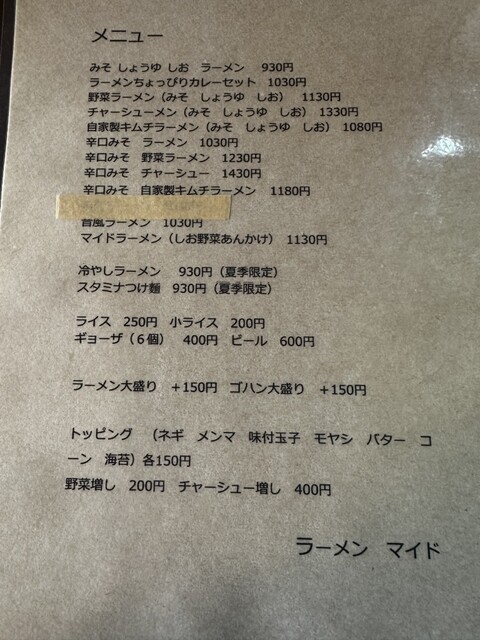 メニュー
みそ しょうゆ しお ラーメン 930円
ラーメンちょっぴりカレーセット 1030円
野菜ラーメン（みそ しょうゆ しお） 1130円
チャーシューメン（みそ しょうゆ しお） 1330円
自家製キムチラーメン（みそ しょうゆ しお） 1080円
辛口みそ ラーメン 1030円
辛口みそ 野菜ラーメン 1230円
辛口みそ チャーシュー 1430円
辛口みそ 自家製キムチラーメン 1180円
昔風ラーメン 1030円
マイドラーメン（しお野菜あんかけ） 1130円
冷やしラーメン 930円（夏季限定）
スタミナつけ麺 930円（夏季限定）
ライス 250円 小ライス 200円
ギョーザ（６個） 400円 ビール 600円
ラーメン大盛り ＋150円 ゴハン大盛り ＋150円
トッピング （ネギ メンマ 味付玉子 モヤシ バター コ
ーン 海苔）各150円
野菜増し 200円 チャーシュー増し 400円
ラーメン マイド